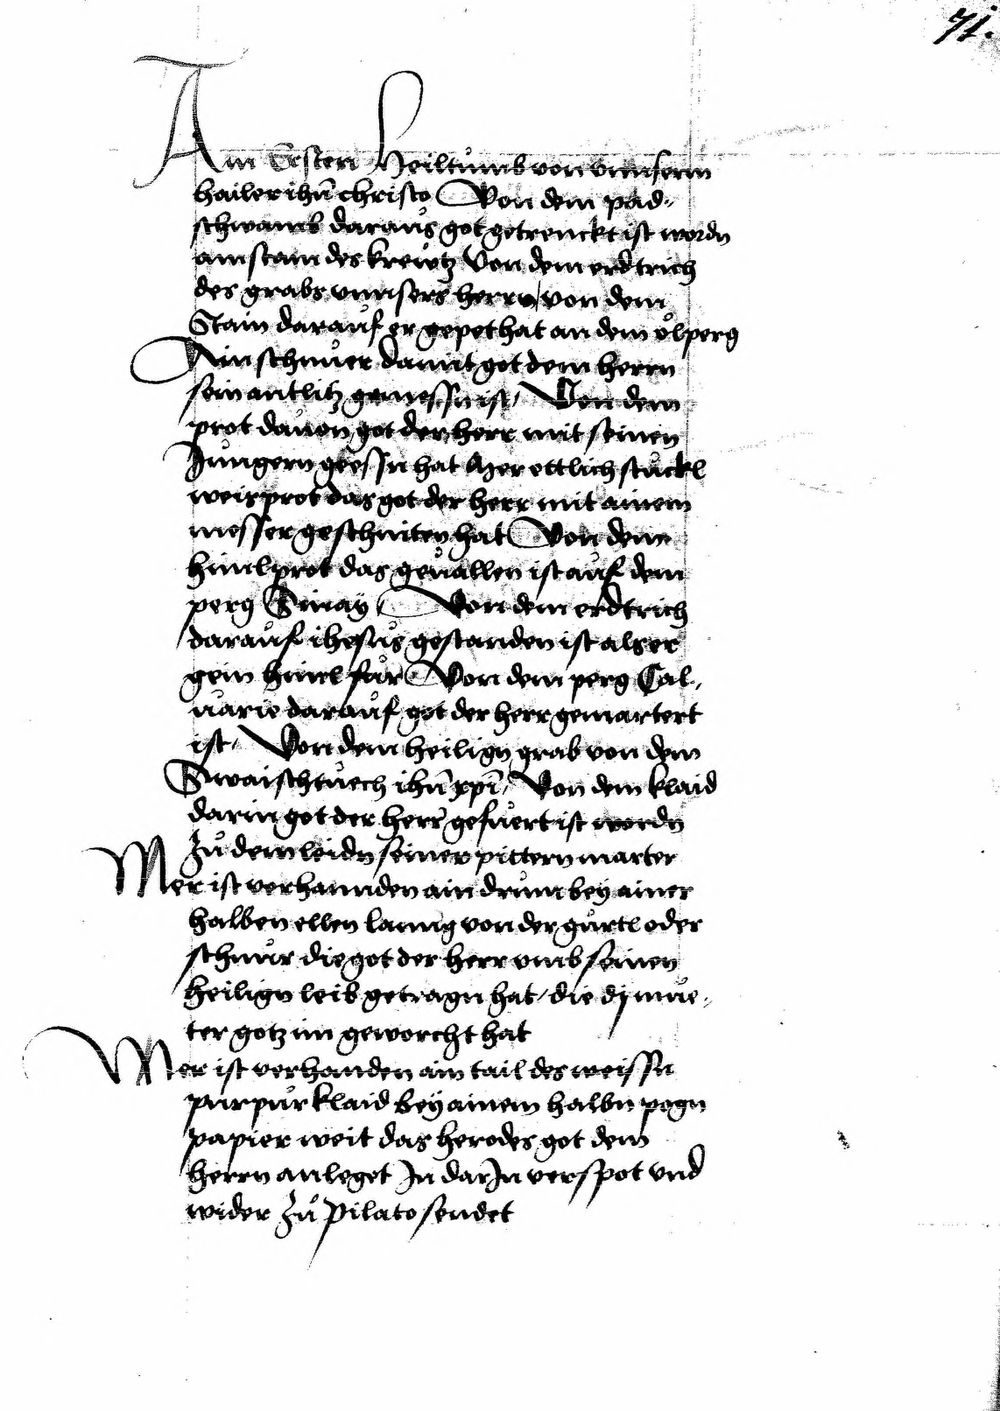 71.
Am Ersten Heiltumb von vnnserm
hailer ihū christo Von dem pad-
schwamb daraus got getrenckt ist wordn
am stam des kreütz Von dem erdtrich
des grabs vnnsers herrn von dem
Stain darauf er gepet hat an dem ölperg
Ain schnuer damit got dem herrn
sein antlitz gemessn ist / Von dem
prot dauon got der herr mit seinen
Jungern geessn hat Mer ettlich stuckl
weis prot das got der herr mit ainem
messer geschniten hat Von dem
himlprot das geuallen ist auf dem
perg Sinay / Von dem erdtrich
darauf ihesus gestanden ist als er
gein himel fur Von dem perg Cal-
uarie darauf got der herr gemartert
ist / Von dem heilign grab von dem
Swaischtuech ihū xpī / Von dem klaid
darin got der herr gefuert ist wordn
Zu dem leidn seiner pittern marter
Mer ist verhannden ain drum bey ainer
halben ellen lanng von der gurtl oder
schnur die got der herr vmb seinen
heilign leib getragn hat / die dj mue-
ter gotz im geworcht hat
Mer ist verhanden ain tail des weissn
purpur klaid bey ainem halbn pogn
papier weit das herodes got dem
herrn anleget In darIn verspot vnd
wider Zu Pilato sendet